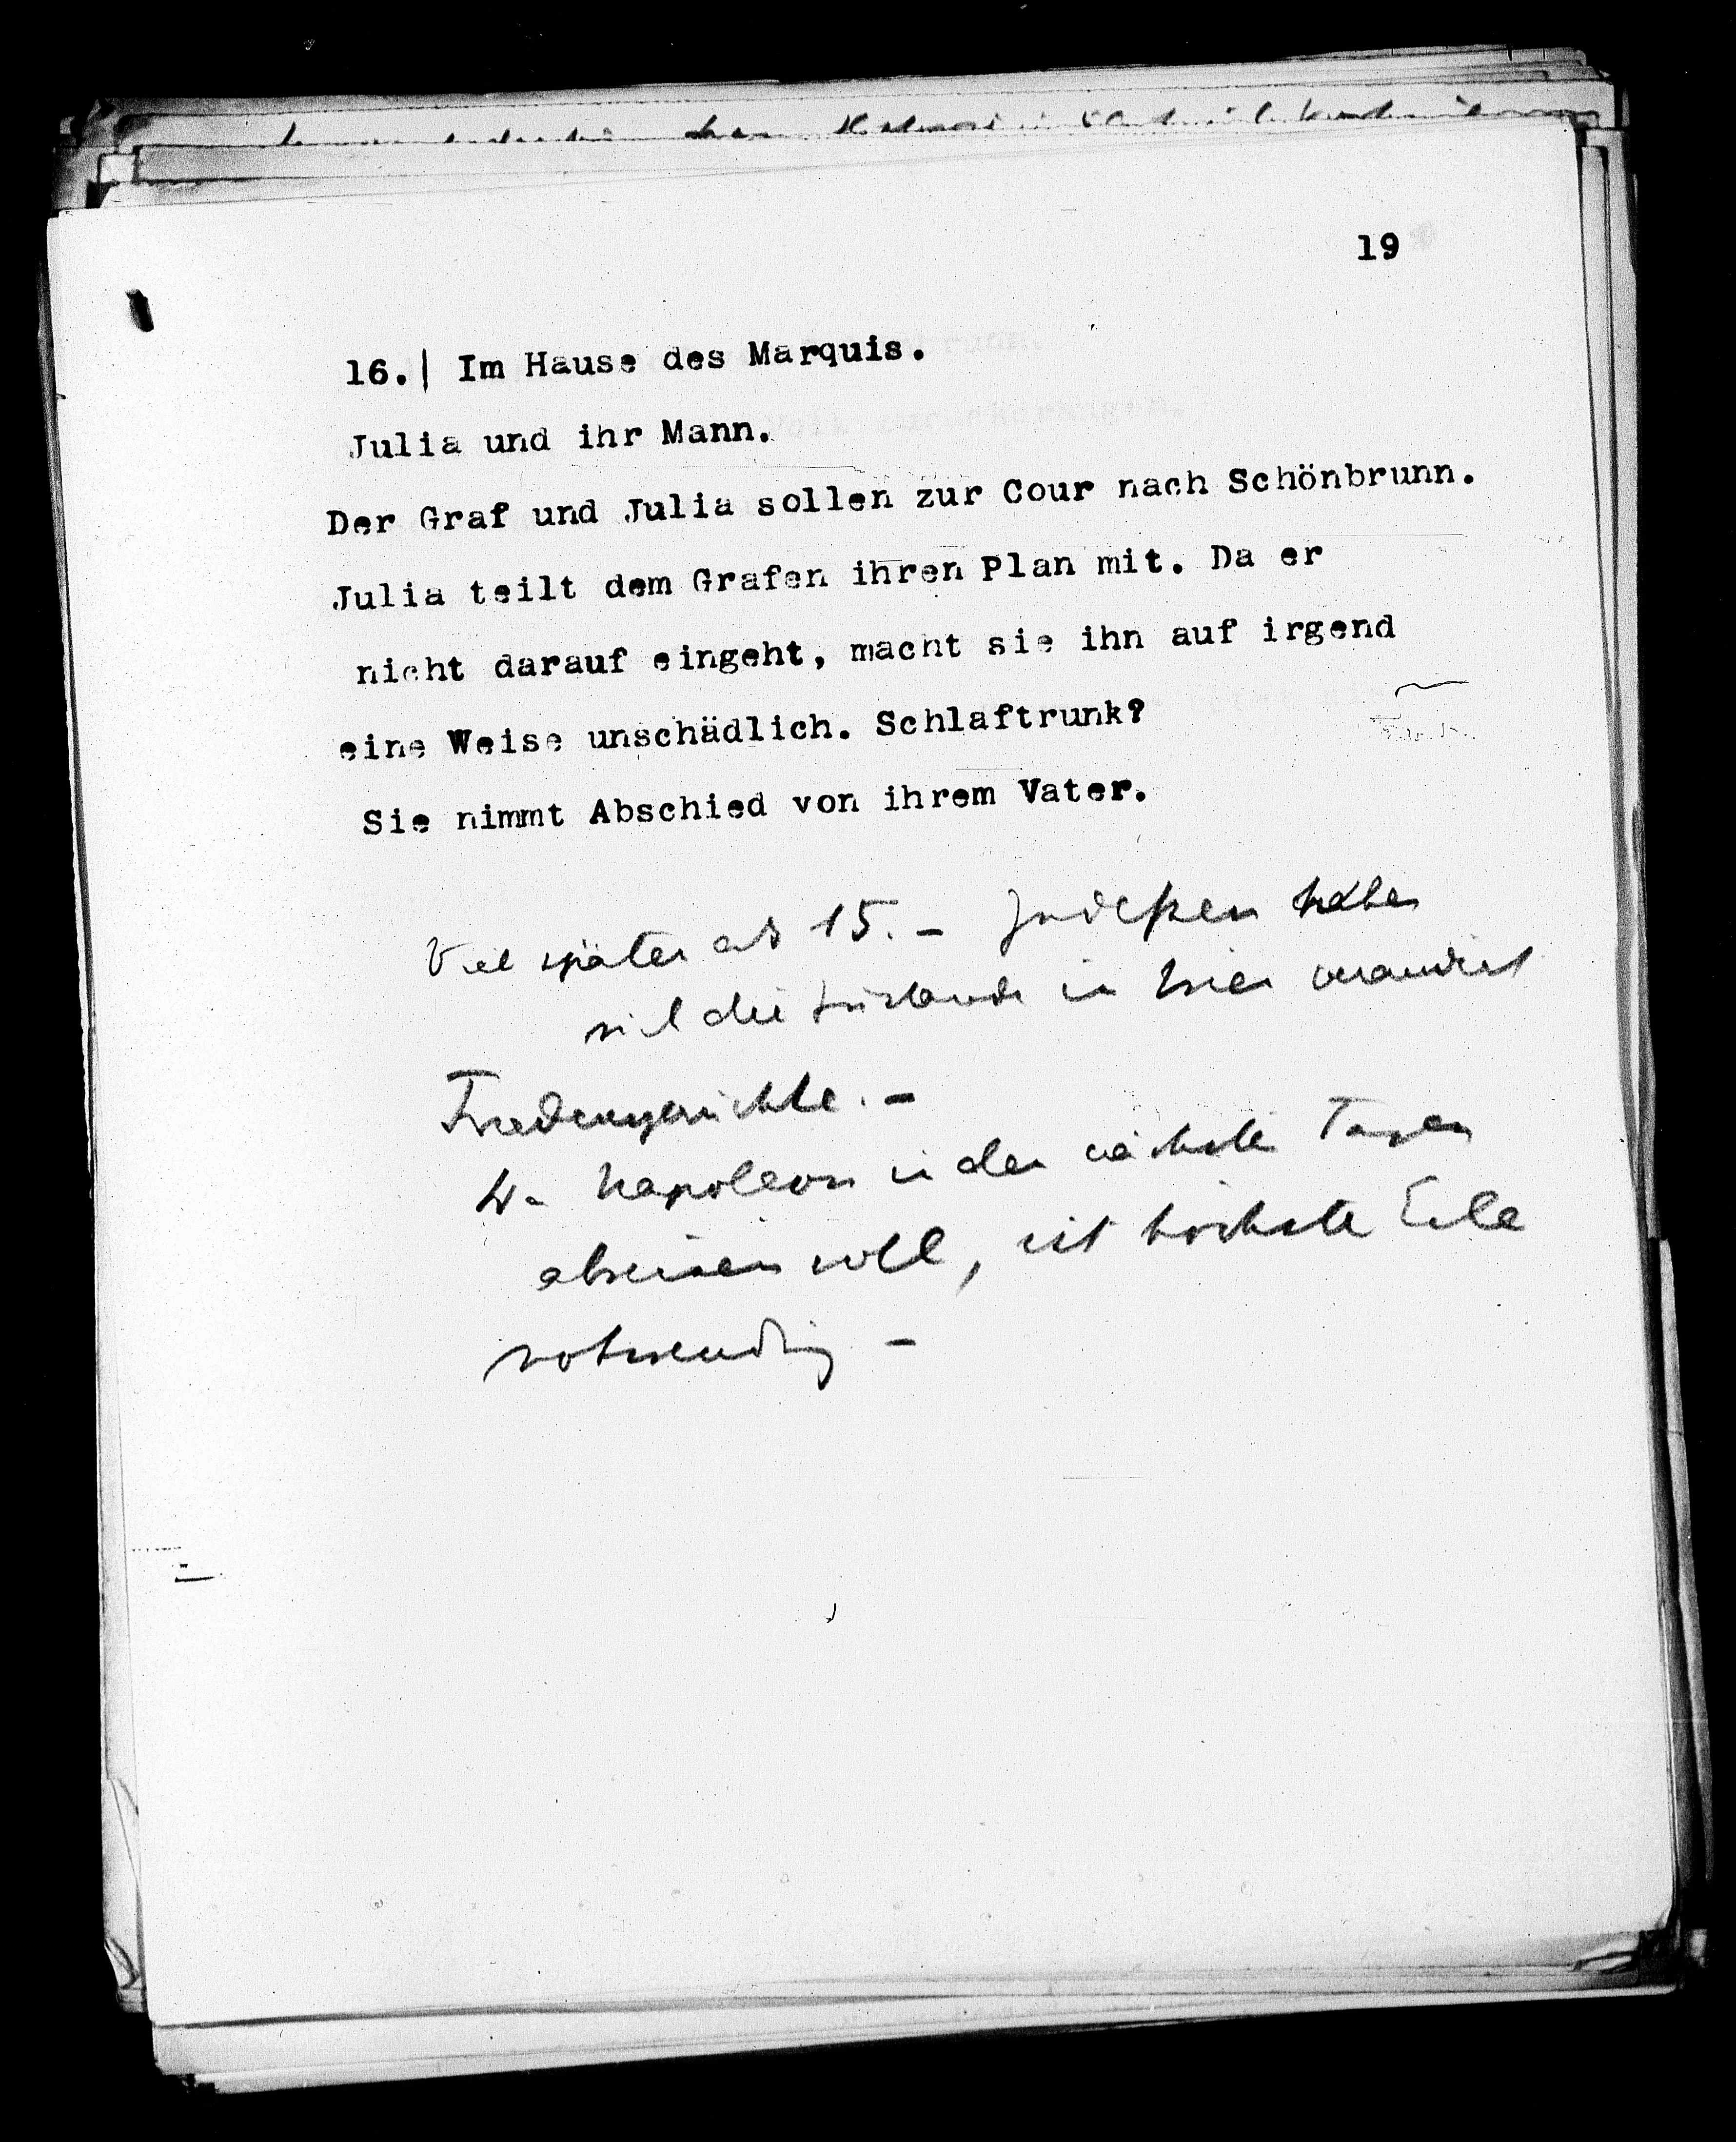 19
16.| Im Hause des Marquis.
Julia und ihr Mann.
Der Graf und Julia sollen zur Cour nach Schönbrunn.
Julia teilt dem Grafen ihren Plan mit. Da er
nicht darauf eingeht, macht sie ihn auf irgend
eine Weise unschädlich. Schlaftrunk?
Sie nimmt Abschied von ihrem Vater.
Viel später als 15. – Indeßen haben
sich die Zustände in Wien verändert
Friedensgerüchte. –
Da Napoleon in den nächsten Tagen
abreisen soll, ist höchste Eile
notwendig –